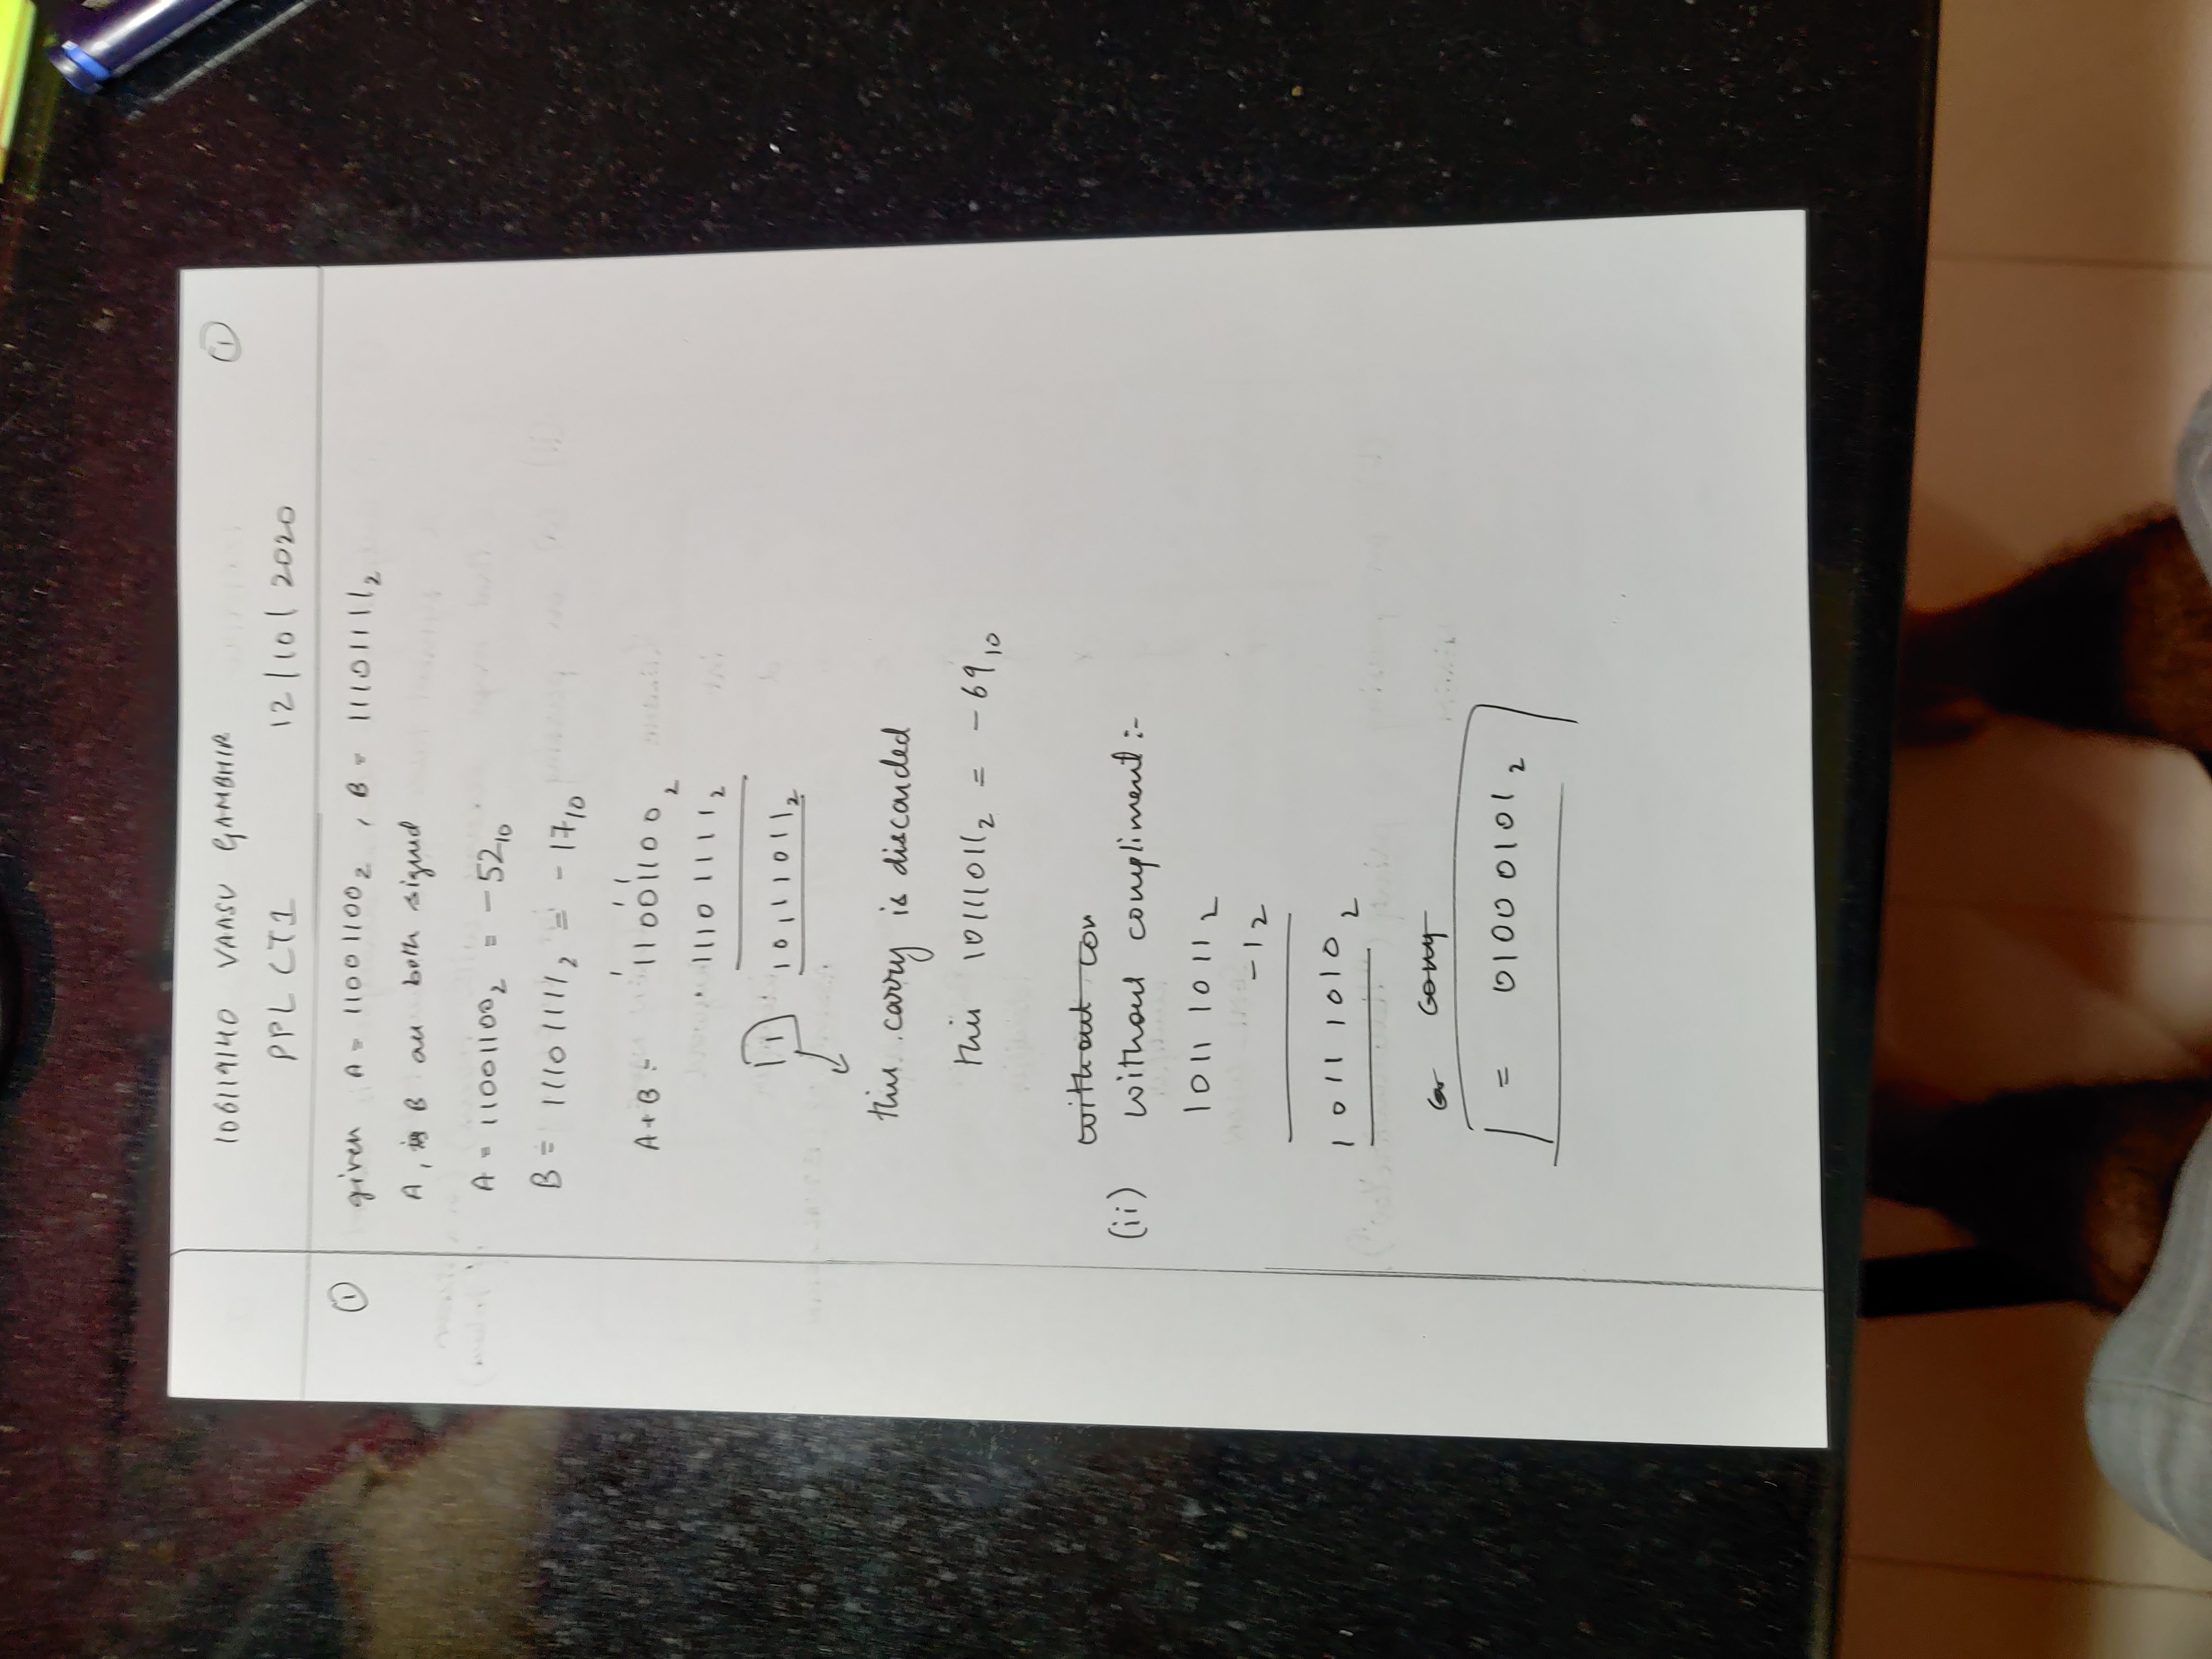 106119140 VAASU GAMBHIR
①
PPL CT1 12/10/2020
① given A = 11001100₂ , B = 11101111₂
A, B are both signed
A = 11001100₂ = -52₁₀
B = 11101111₂ = -17₁₀
1 1 1
A+B :- 11001100₂
11101111₂
1 10111011₂
this carry is discarded
this 10111011₂ = -69₁₀
without con
(ii) without compliment :-
10111011₂
-1₂
10111010₂
= 01000101₂